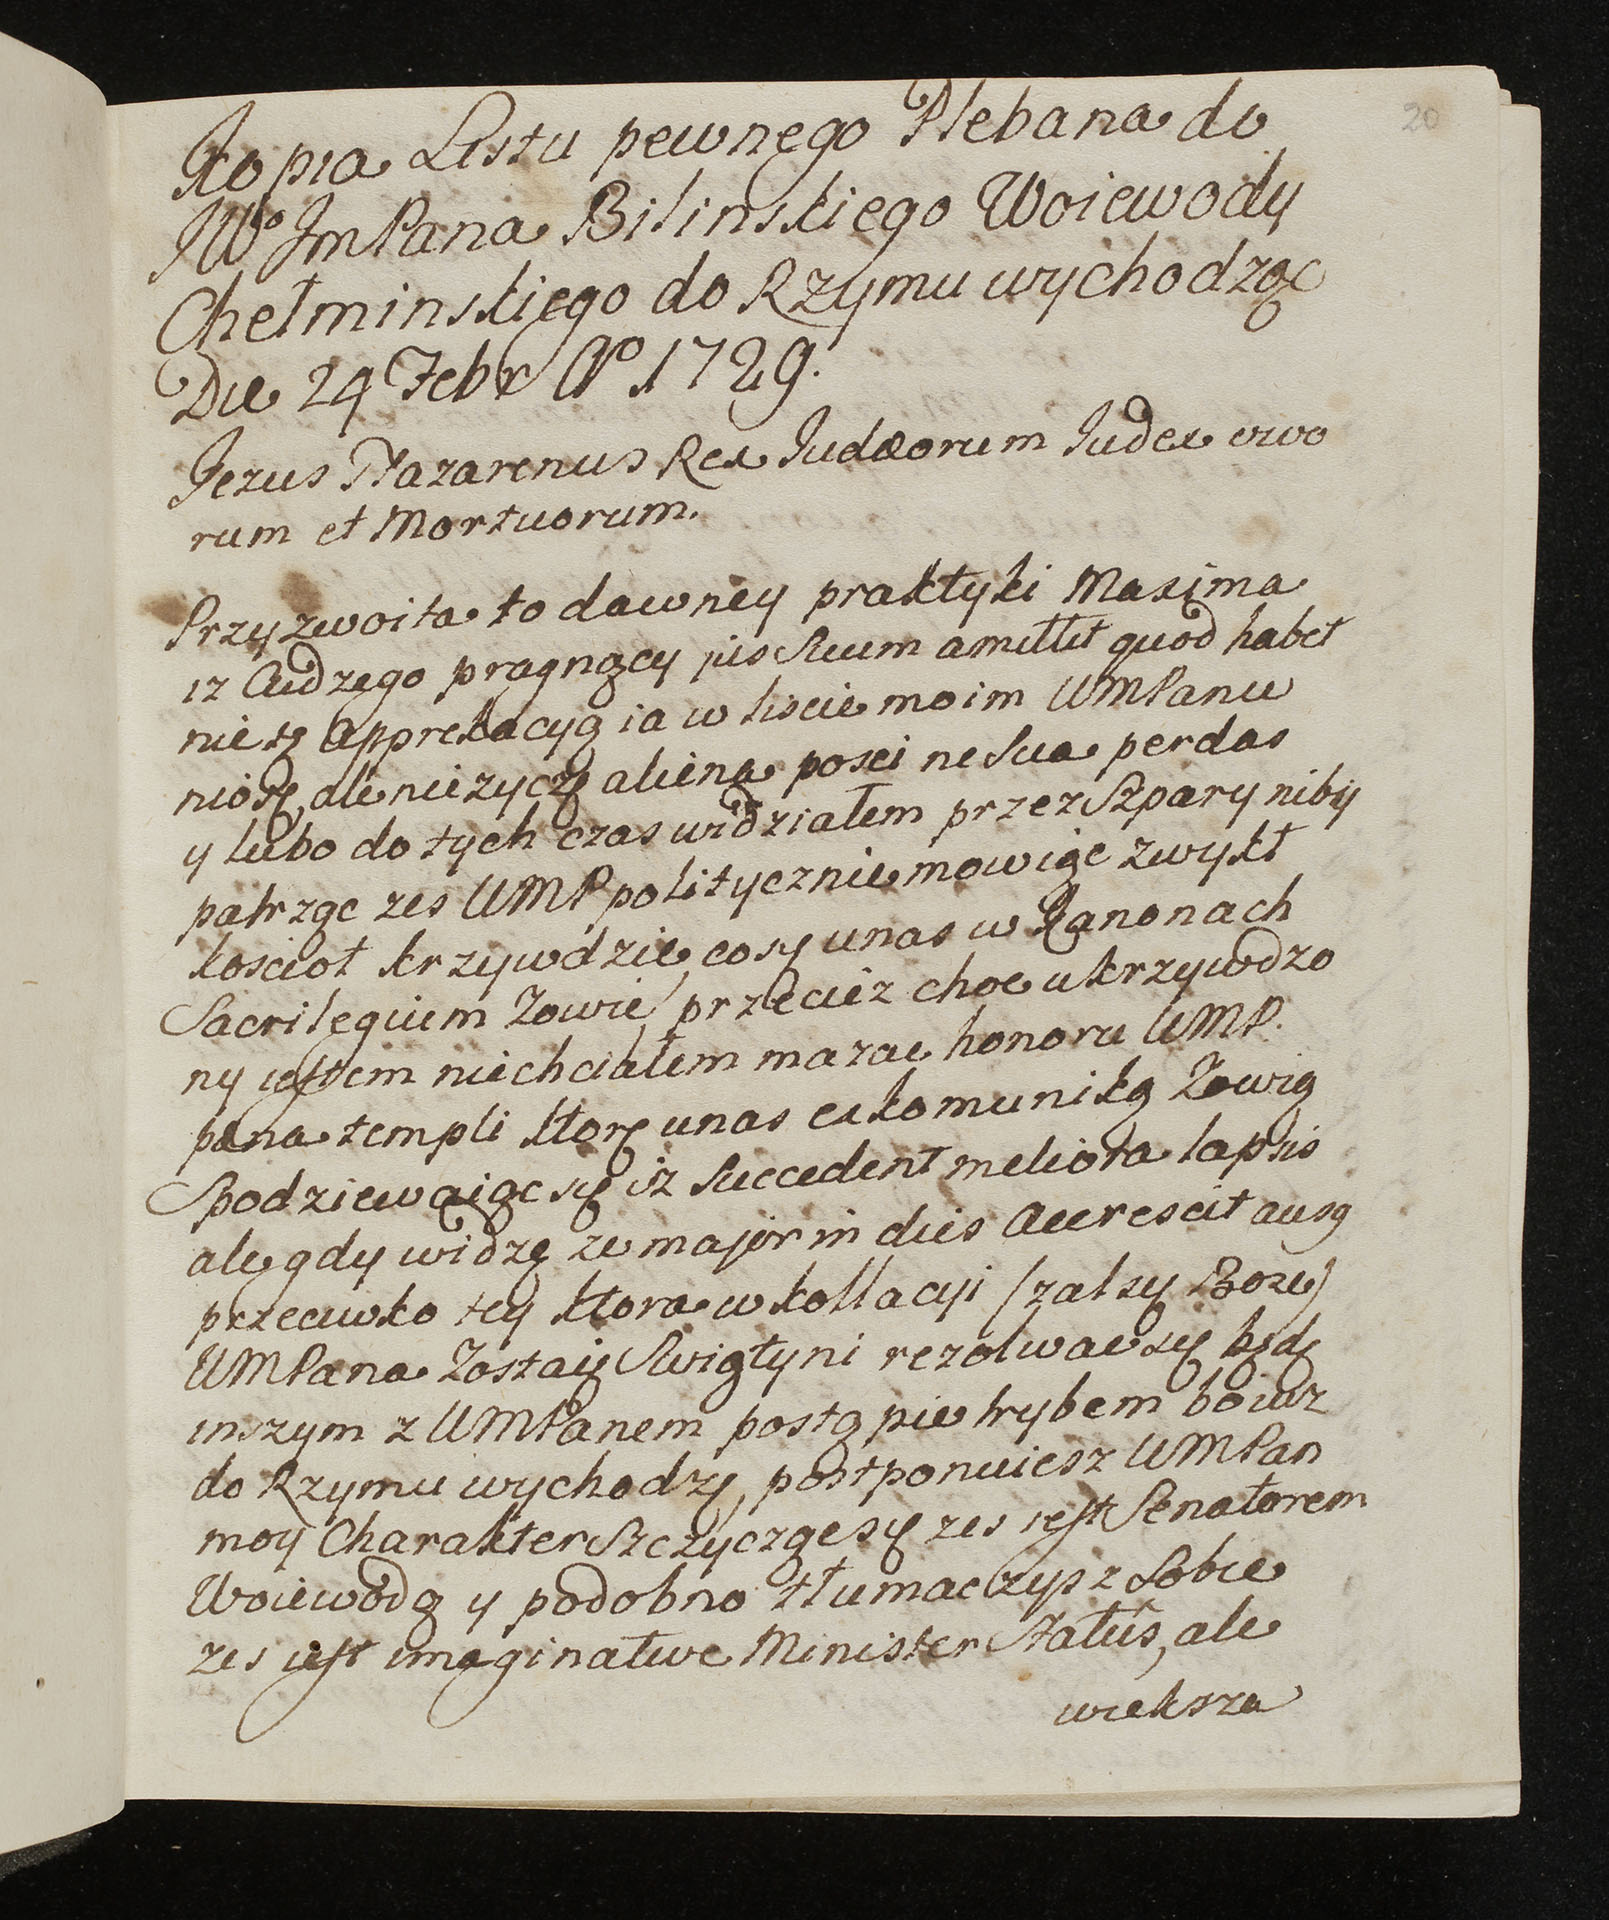 20
Kopia Listu pewnego Plebana do
JWo JmPana Bilinskiego Woiewody
Chełminskiego do Rzymu wychodząc
Die 24 Febr Ao 1729.
Jezus Nazarenus Rex Judæorum Judex vivo
rum et Mortuorum.
Przyzwoita to dawney praktyki Maxima
iz Cudzego pragnący jus Suum amittit quod habet
nie tą apprekacyą ia w liscie moim WMPanu
niosę, ale nie życzę aliena posci ne Sua perdas
y lubo do tych czas widziałem przez Szpary niby
patrząc zes WMP politycznie mowiąc zwykł
koscioł krzywdzic, co sy unas w Kanonach
Sacrilegium Zowie, przecież choc ukrzywdzo
ny iestem niechciałem mazac honoru WMP.
pana templi ktorę unas exkomuniką Zowią
Spodziewaiąc się iż Succedent meliora lapsis
ale gdy widzę ze major in dies accrescit ausą
przeciwko tey ktora w kollacyi (zal sy Boze)
WMPana Zostaie Swiątyni rezolwac się będę
inszym z WMPanem postąpie trybem bo iuz
do Rzymu wychodzę, postponuiesz WMPan
moy Charakter Szczycząc się zes iest Senatorem
Woiewodą y podobno tłumaczysz Sobie
zes iest imaginative Minister Statûs, ale
wieksza